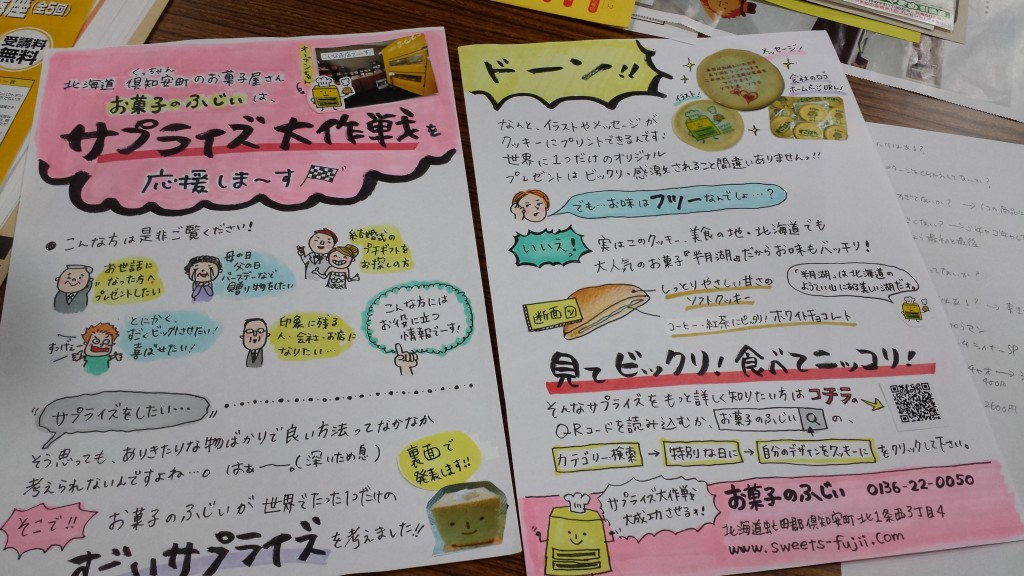 受講料
無料
座(全5回)
北海道 倶知安町のお菓子屋さん
くっちゃん
お菓子のふじい は、
サプライズ大作戦を
応援しま〜す
こんな方は是非ご覧ください!
お世話に
なった方へ
プレゼントしたい
母の日
父の日
バースデーなど
贈り物をしたい
結婚式の
プチギフトを
お探しの方
すっげぇー
とにかく、
すごくビックリさせたい!
喜ばせたい!
印象に残る
人・会社・お店に
なりたい…
こんな方には
お役に立つ
情報でーす!
"サプライズをしたい…"
そう思っても、ありきたりな物ばかりで良い方法ってなかなか
考えられないんですよね…。はぁー。(深いため息)
裏面で
発表します!!
そこで!!
お菓子のふじいが世界でたった1つだけの
すごいサプライズを考えました!!
ドーン!!
メッセージ♪
イラスト♪
会社のロゴ
ホームページURL!
なんと、イラストやメッセージが
クッキーにプリントできるんです!
世界に1つだけのオリジナル
プレゼントはビックリ・感激されること間違いありませんっ!!
でも…お味はフツーなんでしょ…?
いいえ!
実はこのクッキー、美食の地・北海道でも
大人気のお菓子『半月湖』だからお味もバッチリ!
断面
しっとりやさしい甘さの
ソフトクッキー
コーヒー・紅茶にぴったり♪ホワイトチョコレート
『半月湖』は北海道の
ようてい山にある美しい湖だよ。
見てビックリ!食べてニッコリ!
そんなサプライズをもっと詳しく知りたい方はコチラ。
QRコードを読み込むか、お菓子のふじい Q の、
カテゴリー検索 → 特別な日に → 自分のデザインをクッキーに をクリックして下さい。
サプライズ大作戦
大成功させるョ!
お菓子のふじい 0136-22-0050
北海道虻田郡倶知安町北1条西3丁目4
www.sweets-fujii.com